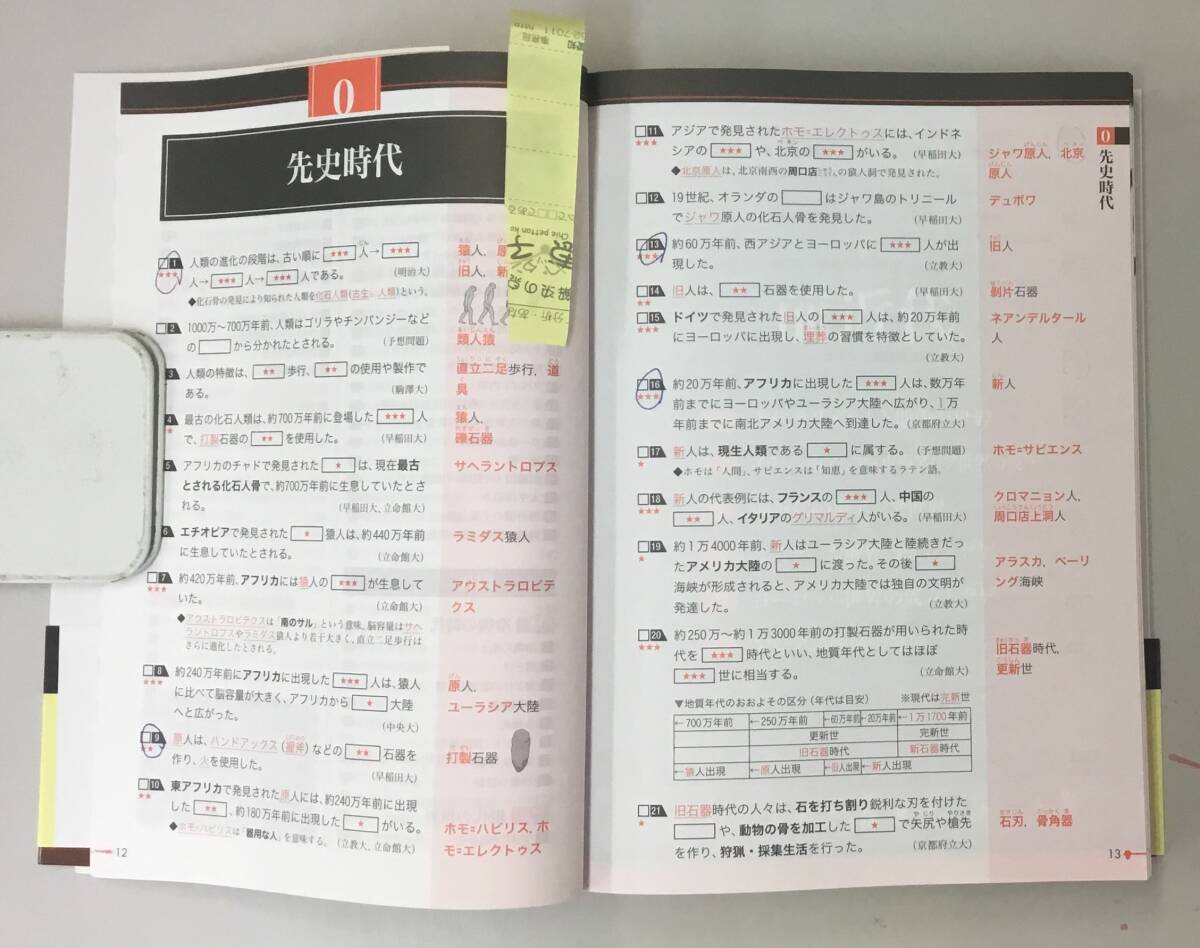 0
先史時代
1 人類の進化の段階は、古い順に ★★★ 人→ ★★★
★★★ 人→ ★★★ 人→ ★★★ 人である。 (明治大)
◆化石骨の発見により知られた人類を化石人類(古生 人類)という。
猿人, 原
旧人, 新
2 1000万〜700万年前、人類はゴリラやチンパンジーなど
の から分かれたとされる。 (予想問題)
類人猿
3 人類の特徴は、 ★★ 歩行、 ★★ の使用や製作で
ある。 (駒澤大)
直立二足歩行, 道
具
4 最古の化石人類は、約700万年前に登場した ★★★ 人
で、打製石器の ★★ を使用した。 (早稲田大)
猿人,
礫石器
5 アフリカのチャドで発見された ★ は、現在最古
とされる化石人骨で、約700万年前に生息していたとさ
れる。 (早稲田大、立命館大)
サヘラントロプス
6 エチオピアで発見された ★ 猿人は、約440万年前
に生息していたとされる。 (立命館大)
ラミダス猿人
7 約420万年前、アフリカには猿人の ★★★ が生息して
★★★ いた。 (立命館大)
◆アウストラロピテクスは「南のサル」という意味。脳容量はサヘ
ラントロプスやラミダス猿人より若干大きく、直立二足歩行は
さらに進化したとされる。
アウストラロピテ
クス
8 約240万年前にアフリカに出現した ★★★ 人は、猿人
★★★ に比べて脳容量が大きく、アフリカから ★ 大陸
へと広がった。 (中央大)
原人,
ユーラシア大陸
9 原人は、ハンドアックス(握斧)などの ★★ 石器を
★★ 作り、火を使用した。 (早稲田大)
打製石器
10 東アフリカで発見された原人には、約240万年前に出現
★★ した ★★ 、約180万年前に出現した ★ がいる。
◆ホモ=ハビリスは「器用な人」を意味する。 (立教大、立命館大)
ホモ=ハビリス, ホ
モ=エレクトゥス
12
11 アジアで発見されたホモ=エレクトゥスには、インドネ
★★★ シアの ★★★ や、北京の ★★★ がいる。 (早稲田大)
◆北京原人は、北京南西の周口店 の猿人洞で発見された。
ジャワ原人, 北京
原人
12 19世紀、オランダの はジャワ島のトリニール
でジャワ原人の化石人骨を発見した。 (早稲田大)
デュボワ
13 約60万年前、西アジアとヨーロッパに ★★★ 人が出
★★★ 現した。 (立教大)
旧人
14 旧人は、 ★★ 石器を使用した。 (早稲田大)
★★
剝片石器
15 ドイツで発見された旧人の ★★★ 人は、約20万年前
★★★ にヨーロッパに出現し、埋葬の習慣を特徴としていた。
(立教大)
ネアンデルタール
人
16 約20万年前、アフリカに出現した ★★★ 人は、数万年
★★★ 前までにヨーロッパやユーラシア大陸へ広がり、1万
年前までに南北アメリカ大陸へ到達した。 (京都府立大)
新人
17 新人は、現生人類である ★ に属する。 (予想問題)
★ ◆ホモは「人間」、サピエンスは「知恵」を意味するラテン語。
ホモ=サピエンス
18 新人の代表例には、フランスの ★★★ 人、中国の
★★★ ★★ 人、イタリアのグリマルディ人がいる。 (早稲田大)
クロマニョン人,
周口店上洞人
19 約1万4000年前、新人はユーラシア大陸と陸続きだっ
★ たアメリカ大陸の ★ に渡った。その後 ★
海峡が形成されると、アメリカ大陸では独自の文明が
発達した。 (立教大)
アラスカ, ベーリ
ング海峡
20 約250万〜約1万3000年前の打製石器が用いられた時
★★★ 代を ★★★ 時代といい、地質年代としてはほぼ
★★★ 世に相当する。 (立命館大)
旧石器時代,
更新世
▼地質年代のおおよその区分(年代は目安) ※現代は完新世
←700万年前 ←250万年前 ←60万年前 ←20万年前 ←1万1700年前
更新世 完新世
旧石器時代 新石器時代
←猿人出現 ←原人出現 ←旧人出現 ←新人出現
21 旧石器時代の人々は、石を打ち割り鋭利な刃を付けた
★ や、動物の骨を加工した ★ で矢尻や槍先
を作り、狩猟・採集生活を行った。 (京都府立大)
石刃, 骨角器
0 先史時代
13